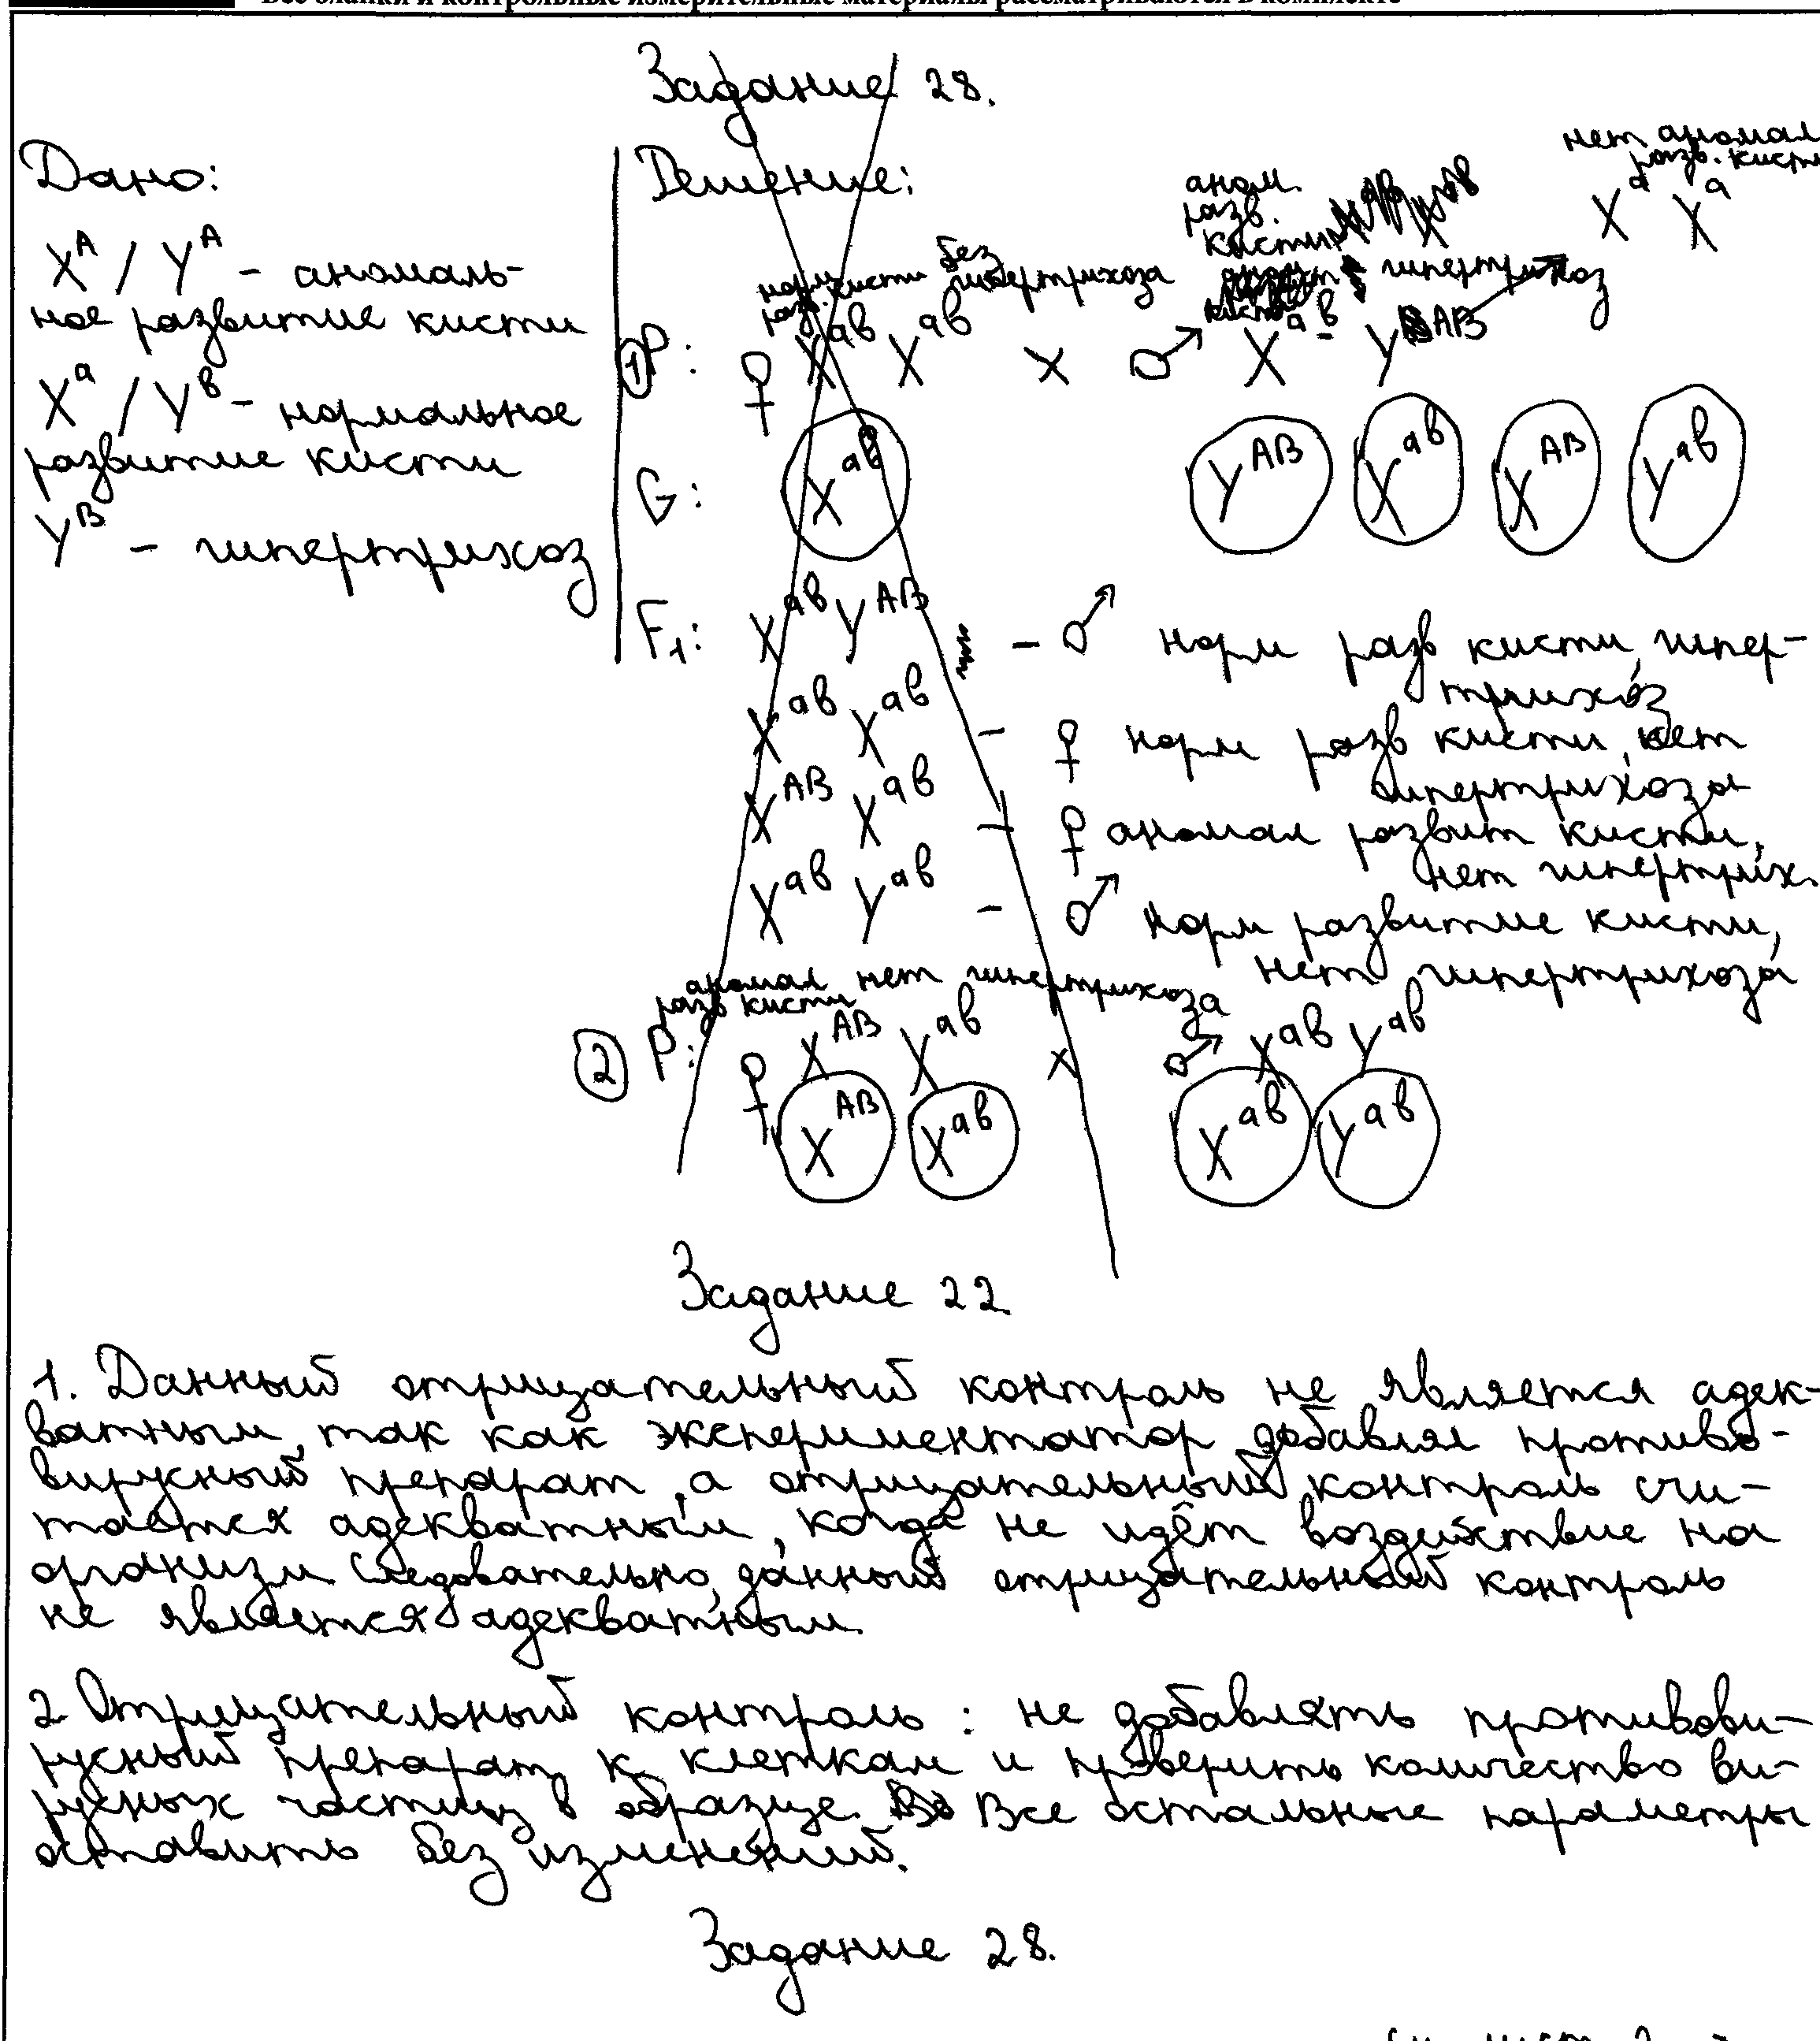 Все бланки и контрольные измерительные материалы рассматриваются в комплекте
Задание 28.
Дано:
X^A / Y^A - аномаль-
ное развитие кисти
X^a / Y^в - нормальное
развитие кисти
Y^B - гипертрихоз
Решение:
нет аномал
разв. кисти
X^a X^a
аном.
разв.
кисти
гипертрихоз
норм
разв. кисти
без
гипертрихоза
① P: ♀ X^ав X^ав x ♂ X^ав Y^АВ
G: X^ав Y^АВ X^ав X^АВ Y^ав
F₁: X^ав Y^АВ - ♂ норм разв кисти, гипер-
трихоз
X^ав X^ав - ♀ норм разв кисти, нет
гипертрихоза
X^АВ X^ав - ♀ аномал развит кисти,
нет гипертрих.
X^ав Y^ав - ♂ норм развитие кисти,
нет гипертрихоза
аномал нет гипертрихоза
разв кисти
② P: ♀ X^АВ X^ав x ♂ X^ав Y^ав
X^АВ X^ав X^ав Y^ав
Задание 22
1. Данный отрицательный контроль не является адек-
ватным, так как экспериментатор добавлял противо-
вирусный препарат, а отрицательный контроль счи-
тается адекватным, когда не идёт воздействие на
организм. Следовательно, данный отрицательный контроль
не является адекватным.
2 Отрицательный контроль: не добавлять противови-
русный препарат к клеткам и проверить количество ви-
русных частиц в образце. Все остальные параметры
оставить без изменений.
Задание 28.